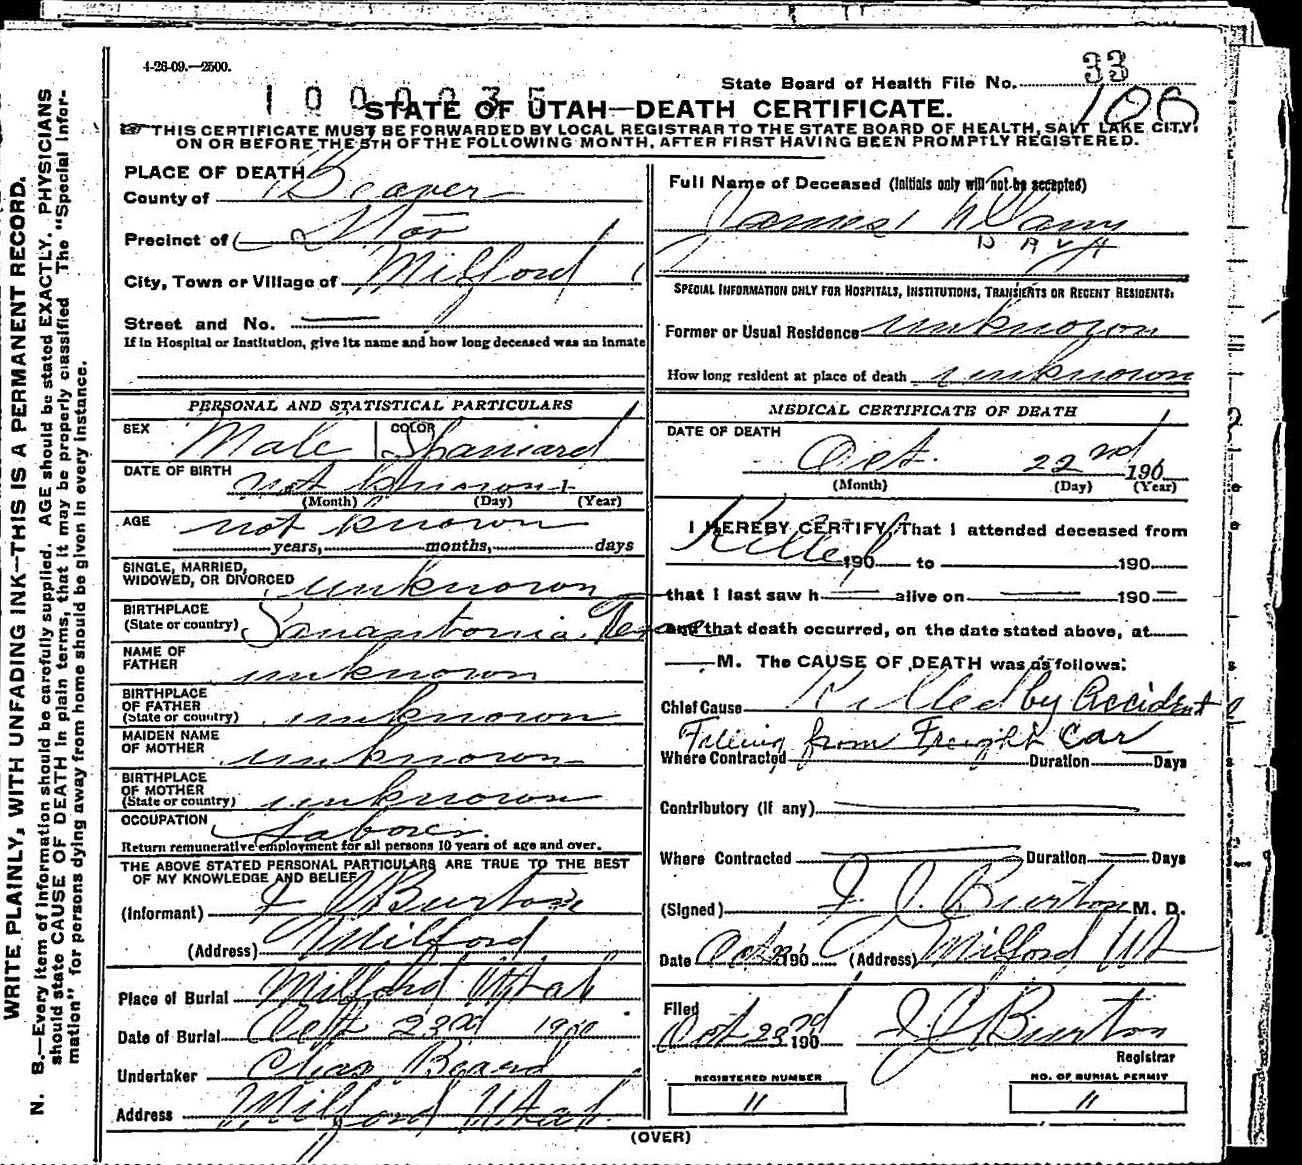 4-26-09.—2500.
State Board of Health File No. 33
1000035
106
STATE OF UTAH—DEATH CERTIFICATE.
THIS CERTIFICATE MUST BE FORWARDED BY LOCAL REGISTRAR TO THE STATE BOARD OF HEALTH, SALT LAKE CITY,
ON OR BEFORE THE 5TH OF THE FOLLOWING MONTH, AFTER FIRST HAVING BEEN PROMPTLY REGISTERED.
WRITE PLAINLY, WITH UNFADING INK—THIS IS A PERMANENT RECORD.
N. B.—Every item of information should be carefully supplied. AGE should be stated EXACTLY. PHYSICIANS
should state CAUSE OF DEATH in plain terms, that it may be properly classified. The "Special Infor-
mation" for persons dying away from home should be given in every instance.
PLACE OF DEATH
County of Beaver
Precinct of Star
City, Town or Village of Milford
Street and No. —
If in Hospital or Institution, give its name and how long deceased was an inmate
PERSONAL AND STATISTICAL PARTICULARS
SEX Male COLOR Spaniard
DATE OF BIRTH not known
(Month) (Day) (Year)
AGE not known
years, months, days
SINGLE, MARRIED,
WIDOWED, OR DIVORCED unknown
BIRTHPLACE
(State or country) Sanantonia. Texas
NAME OF
FATHER unknown
BIRTHPLACE
OF FATHER
(State or country) unknown
MAIDEN NAME
OF MOTHER unknown
BIRTHPLACE
OF MOTHER
(State or country) unknown
OCCUPATION Laborer.
Return remunerative employment for all persons 10 years of age and over.
THE ABOVE STATED PERSONAL PARTICULARS ARE TRUE TO THE BEST
OF MY KNOWLEDGE AND BELIEF
(Informant) Burton
(Address) Milford
Place of Burial Milford Utah
Date of Burial Oct 23rd
Undertaker Chas Beard
Address Milford Utah.
Full Name of Deceased (Initials only will not be accepted)
James
SPECIAL INFORMATION ONLY FOR HOSPITALS, INSTITUTIONS, TRANSIENTS OR RECENT RESIDENTS:
Former or Usual Residence unknown
How long resident at place of death unknown
MEDICAL CERTIFICATE OF DEATH
DATE OF DEATH
Oct. 22nd 190
(Month) (Day) (Year)
I HEREBY CERTIFY, That I attended deceased from
Killed 190 to 190
that I last saw h— alive on — 190—
and that death occurred, on the date stated above, at
— M. The CAUSE OF DEATH was as follows:
Chief Cause Killed by Accident
Falling from Freight Car
Where Contracted Duration Days
Contributory (if any)
Where Contracted — Duration — Days
(Signed) Burton M. D.
Date Oct 190 (Address) Milford Ut
Filed
Oct 23rd 190 Burton
Registrar
REGISTERED NUMBER
11
NO. OF BURIAL PERMIT
11
(OVER)